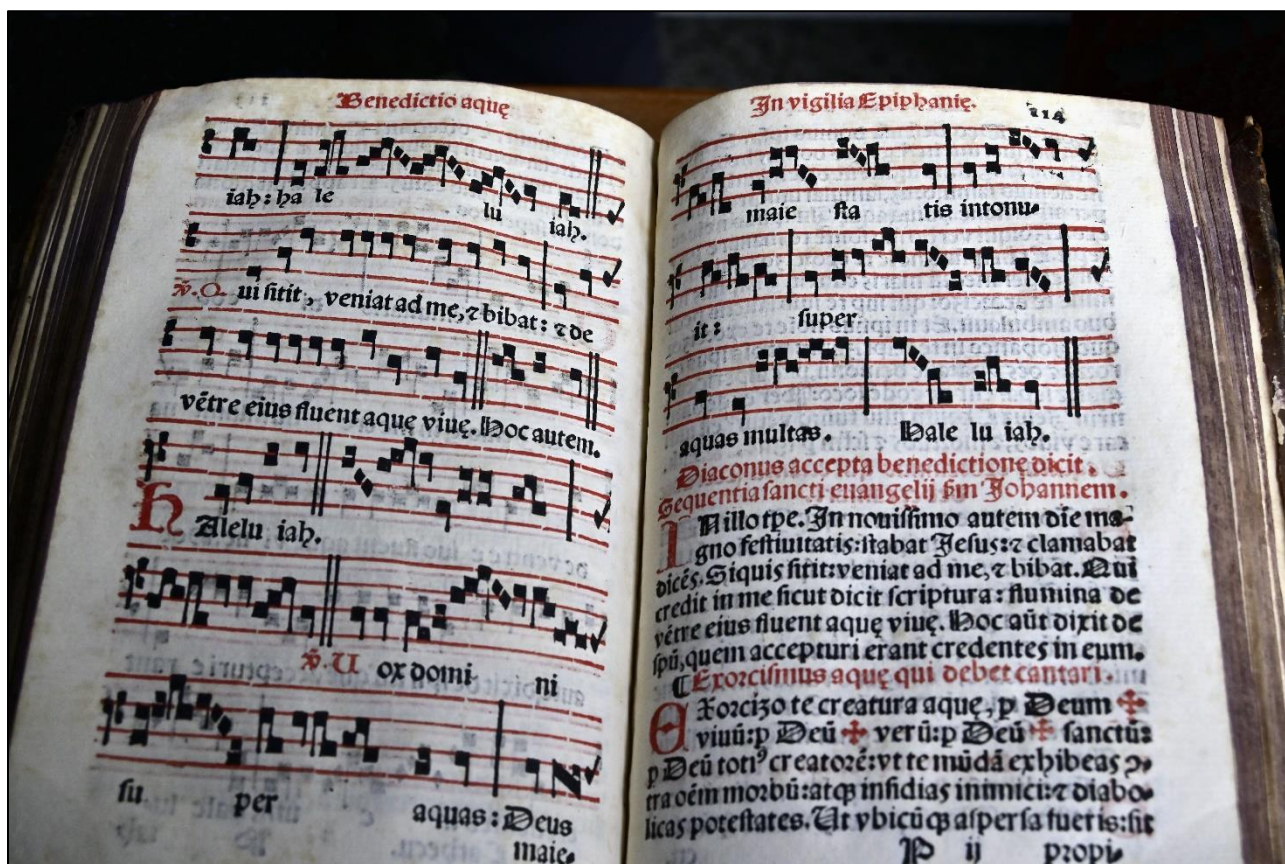 Benedictio aquę
iah: ha le lu iah.
℣. Q ui sitit, veniat ad me, ⁊ bibat: ⁊ de
vētre eius fluent aquę viuę. Hoc autem.
H Alelu iah.
℣. U ox domi ni
su per aquas: Deus
maie⸗
In vigilia Epiphanię. 114
maie sta tis intonu⸗
it: super
aquas multas. Hale lu iah.
Diaconus accepta benedictione dicit.
Sequentia sancti euangelij s̄m Johannem.
IN illo tp̄e. In nouissimo autem die ma⸗
gno festiuitatis: stabat Jesus: ⁊ clamabat
dicēs. Siquis sitit: veniat ad me, ⁊ bibat. Qui
credit in me sicut dicit scriptura: flumina de
vētre eius fluent aquę viuę. Hoc aūt dixit de
sp̄u, quem accepturi erant credentes in eum.
⁋ Exorcismus aquę qui debet cantari.
EXorcizo te creatura aquę, p̱ Deum ✠
viuū: p̱ Deū ✠ verū: p̱ Deū ✠ sanctū:
p̱ Deū totiꝰ creatorē: vt te mūdā exhibeas ↄ⸗
tra oēm morbū: atqꝫ insidias inimici: ⁊ diabo⸗
licas potestates. Ut vbicūqꝫ aspersa fueris: sit
P ij propi⸗